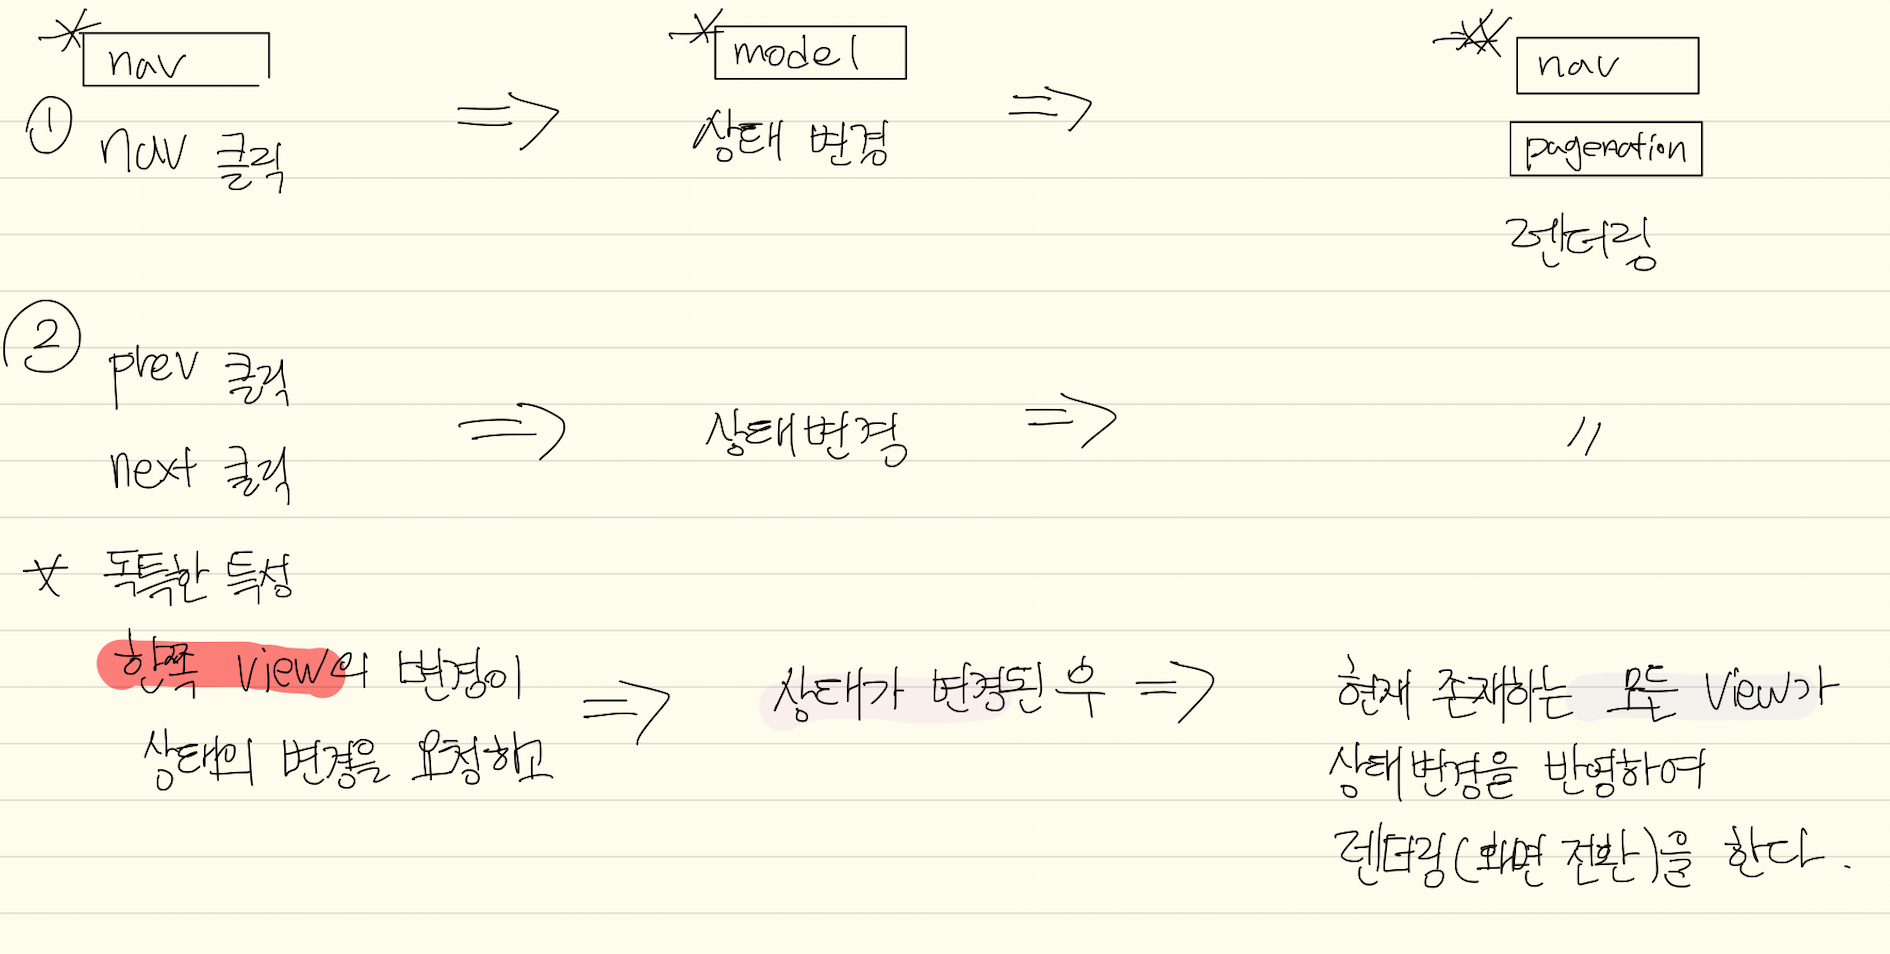 nav
model
nav
① nav 클릭 ⇒ 상태 변경 ⇒
pagenation
렌더링
② prev 클릭
next 클릭 ⇒ 상태변경 ⇒ 〃
* 독특한 특성
한쪽 view의 변경이
상태의 변경을 요청하고
⇒ 상태가 변경된 후 ⇒
현재 존재하는 모든 view가
상태변경을 반영하여
렌더링(화면 전환)을 한다.